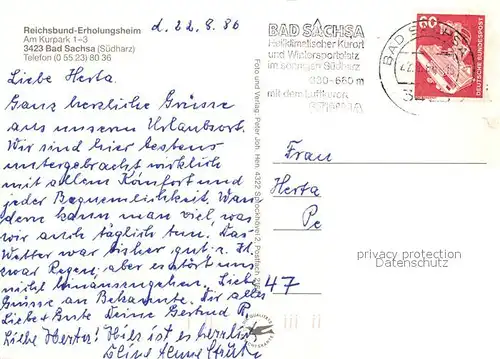 Reichsbund-Erholungsheim
Am Kurpark 1–3
3423 Bad Sachsa (Südharz)
Telefon (0 55 23) 80 36
d. 22.8.86
Liebe Herta.
Ganz herzliche Grüsse
aus unserem Urlaubsort.
Wir sind hier bestens
untergebracht wirklich
mit allem Komfort und
jeder Bequemlichkeit. Wan
dern kann man viel, was
wir auch täglich tun. Das
Wetter war bisher gut. z. Zt.
war Regen, aber es stört uns
nicht hinauszugehen. Liebe
Grüsse an Bekannte. Dir alles
Liebe + Gute Deine Gertrud P.
Liebe Herta! Hier ist es herrlich
Foto und Verlag: Peter Joh. Hen, 4322 Sprockhövel 2, Postfach
BAD SACHSA
Heilklimatischer Kurort
und Wintersportplatz
im sonnigen Südharz
360-660 m
mit dem Luftkurort
BAD SACHSA
60
DEUTSCHE BUNDESPOST
Frau
Herta
Pe
47
privacy protection
Datenschutz